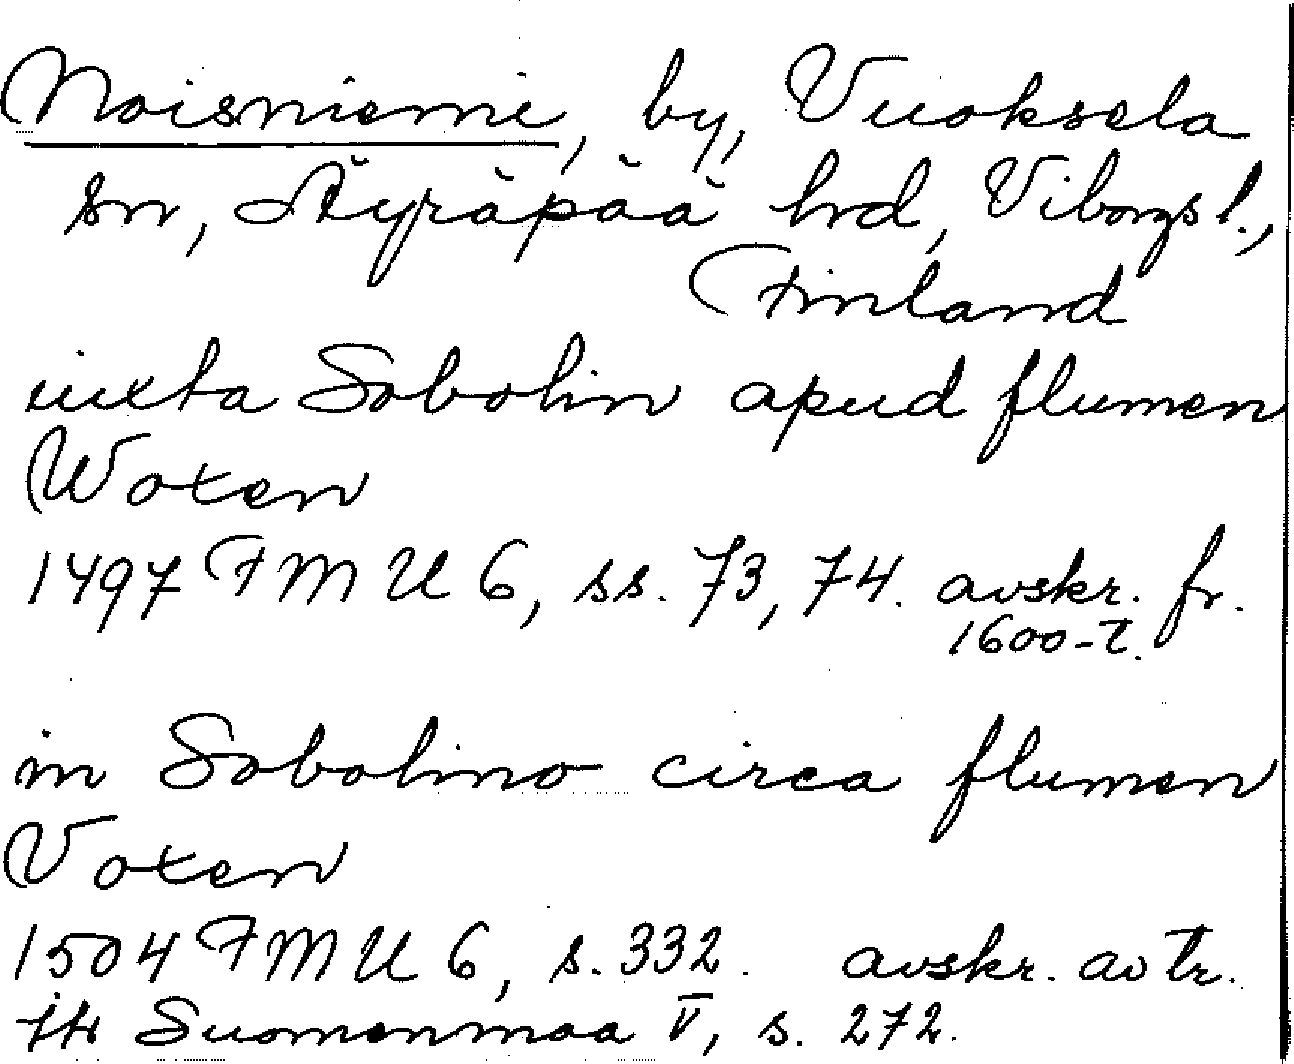 Noisniemi, by, Vuoksela
sn, Äyräpää hd, Viborgs l.,
Finland
iuxta Sobolin apud flumen
Woxen
1497 FMU 6, ss. 73, 74. avskr. fr.
1600-t.
in Sobolino circa flumen
Voxen
1504 FMU 6, s. 332. avskr. av tr.
jfr Suomenmaa V, s. 272.